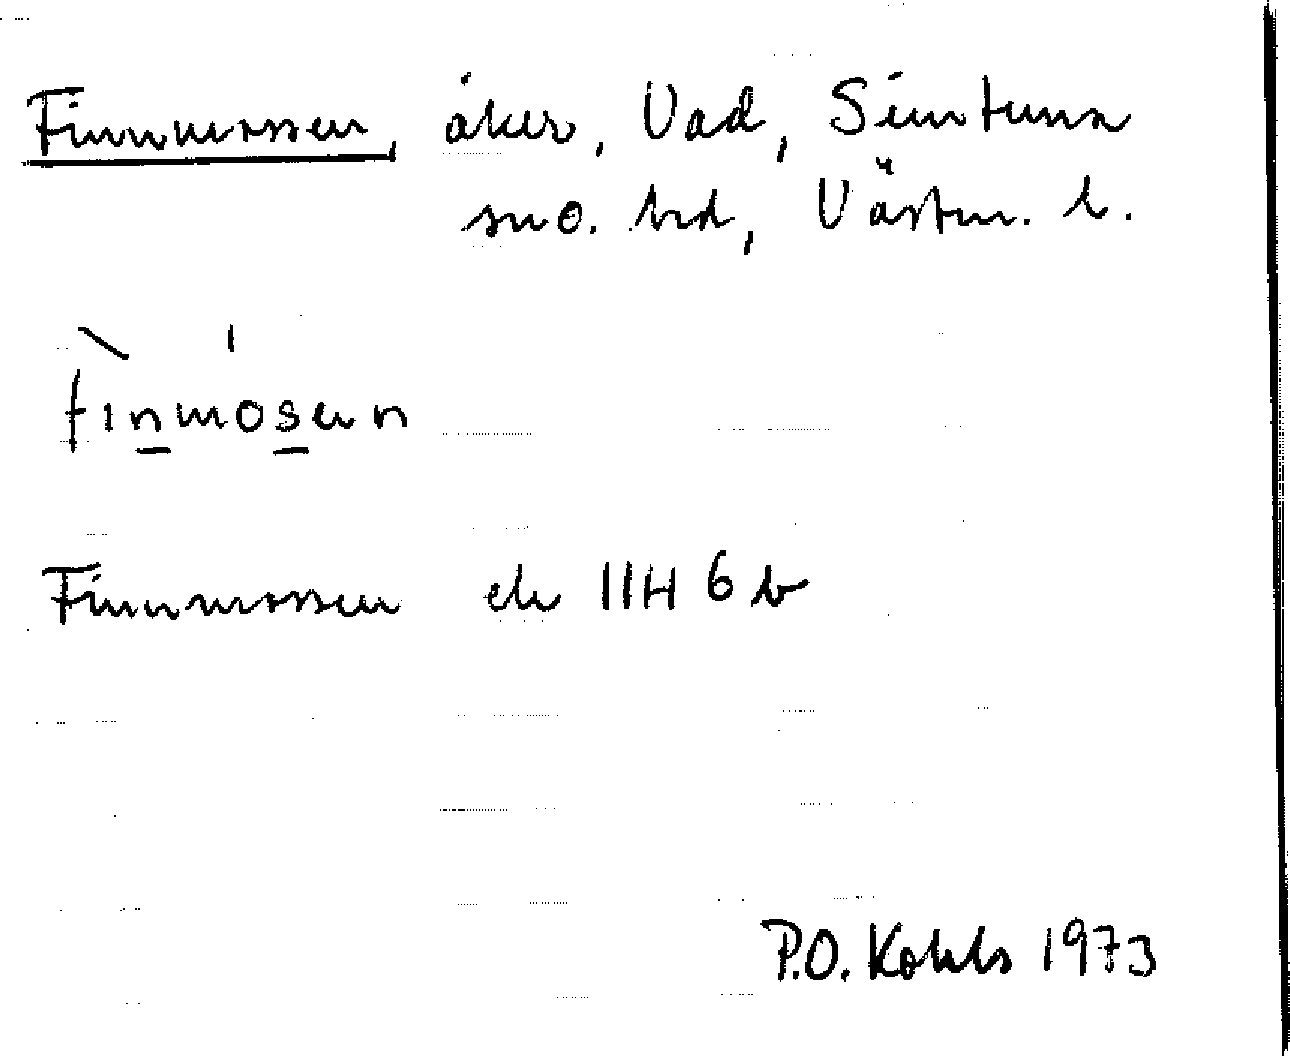 Finnmossen, åker, Vad, Simtuna
sno. hd, Västm. l.
finmosen
Finnmossen ek 11H 6 b
P.O. Kohls 1973